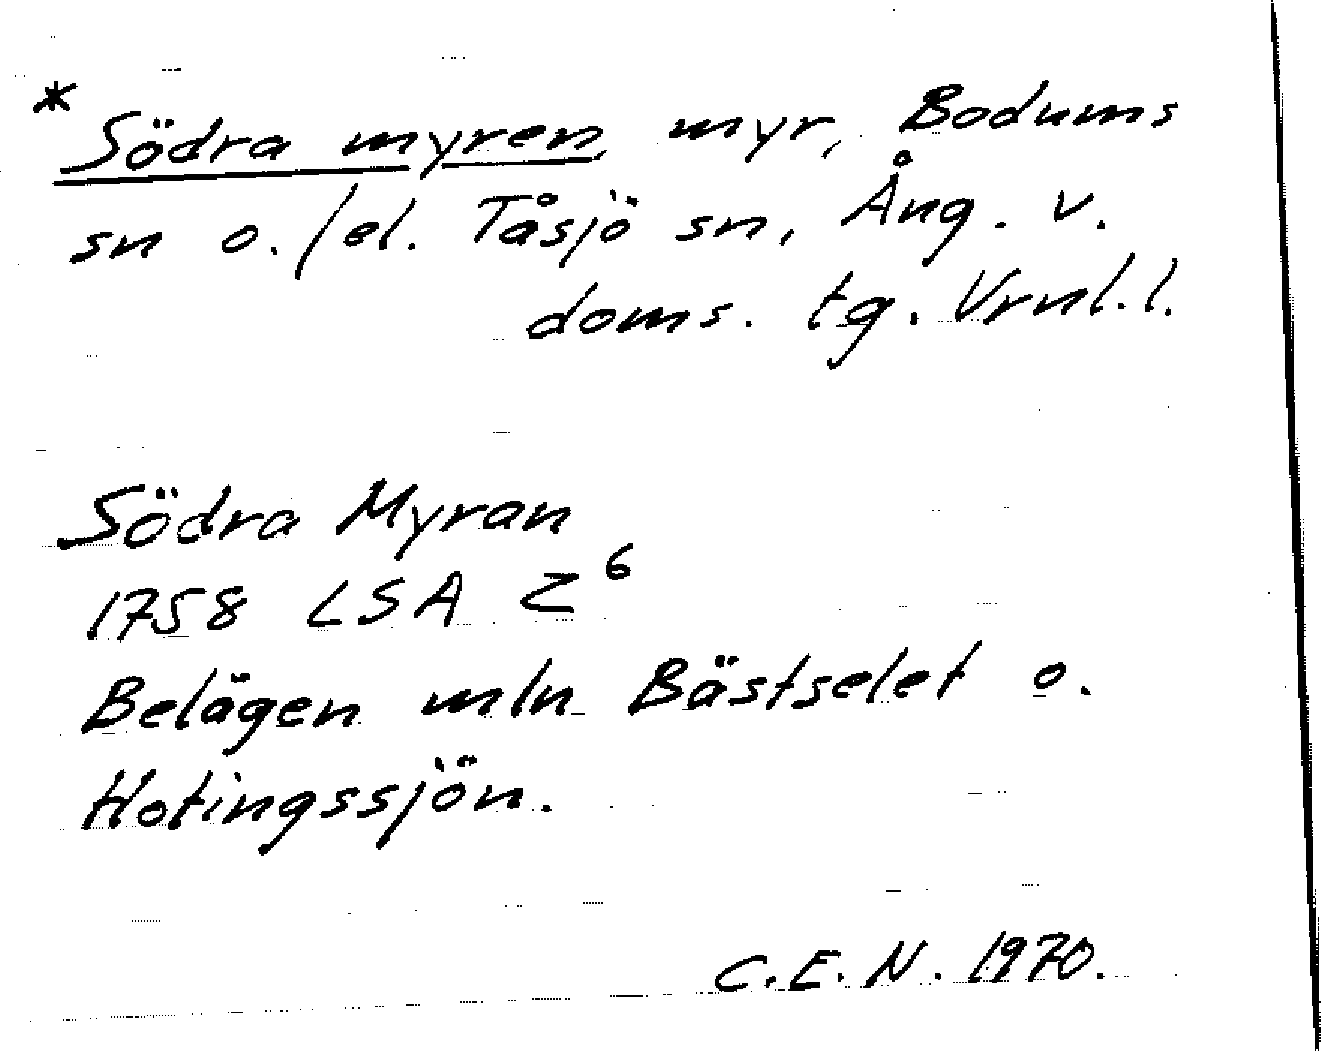 * Södra myren, myr, Bodums
sn o./el. Tåsjö sn, Ång. v.
doms. tg. Vrnl.l.
Södra Myran
1758 LSA Z⁶
Belägen mln Bästselet o.
Hotingssjön.
C.E.N. 1970.